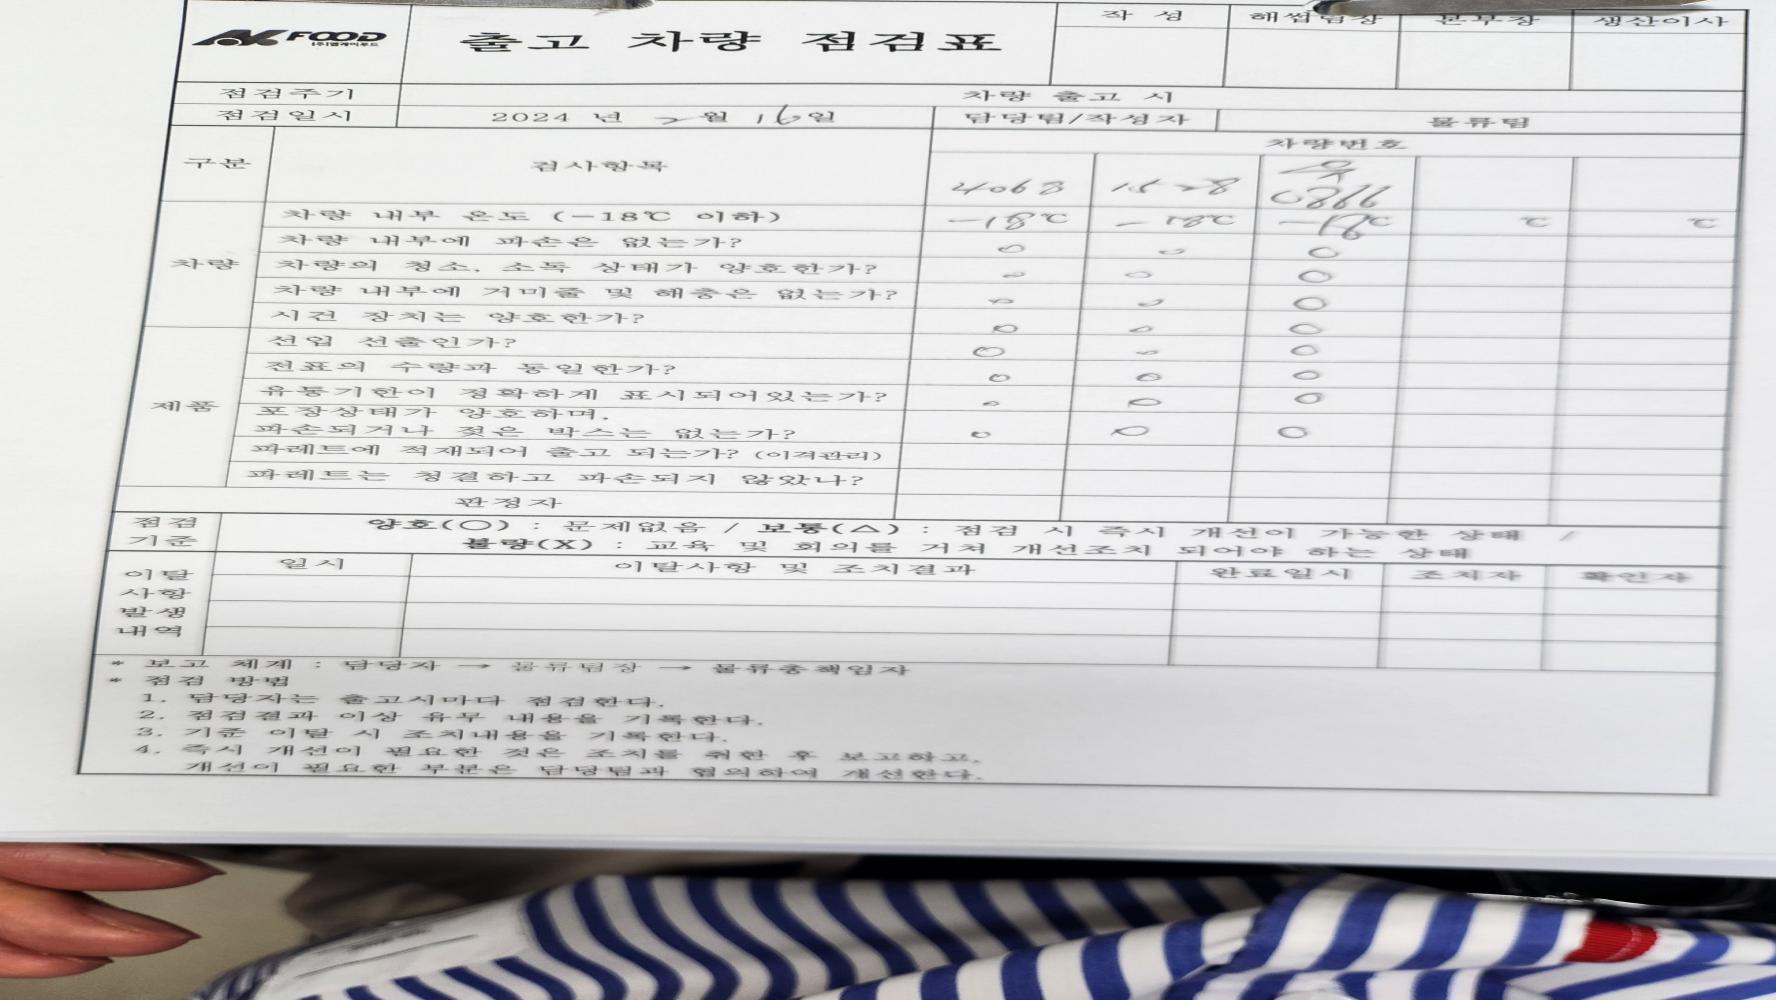 AK FOOD
(주)엘케이푸드
출고 차량 점검표
작 성 해썹팀장 본부장 생산이사
점검주기 차량 출고 시
점검일시 2024 년 2월 16일 담당팀/작성자 물류팀
구분 검사항목 차량번호
4068 1528 0866
차량 차량 내부 온도 (-18℃ 이하) -18℃ -18℃ -18℃ ℃ ℃
차량 내부에 파손은 없는가? ○ ○ ○
차량의 청소, 소독 상태가 양호한가? ○ ○ ○
차량 내부에 거미줄 및 해충은 없는가? ○ ○ ○
시건 장치는 양호한가? ○ ○ ○
제품 선입 선출인가? ○ ○ ○
전표의 수량과 동일한가? ○ ○ ○
유통기한이 정확하게 표시되어있는가? ○ ○ ○
포장상태가 양호하며,
파손되거나 젖은 박스는 없는가? ○ ○ ○
파레트에 적재되어 출고 되는가? (이격관리)
파레트는 청결하고 파손되지 않았나?
판정자
점검 기준 양호(○) : 문제없음 / 보통(△) : 점검 시 즉시 개선이 가능한 상태 /
불량(X) : 교육 및 회의를 거쳐 개선조치 되어야 하는 상태
이탈 사항 발생 내역 일시 이탈사항 및 조치결과 완료일시 조치자 확인자
* 보고 체계 : 담당자 → 물류팀장 → 물류총책임자
* 점검 방법
1. 담당자는 출고시마다 점검한다.
2. 점검결과 이상 유무 내용을 기록한다.
3. 기준 이탈 시 조치내용을 기록한다.
4. 즉시 개선이 필요한 것은 조치를 취한 후 보고하고,
개선이 필요한 부분은 담당팀과 협의하여 개선한다.